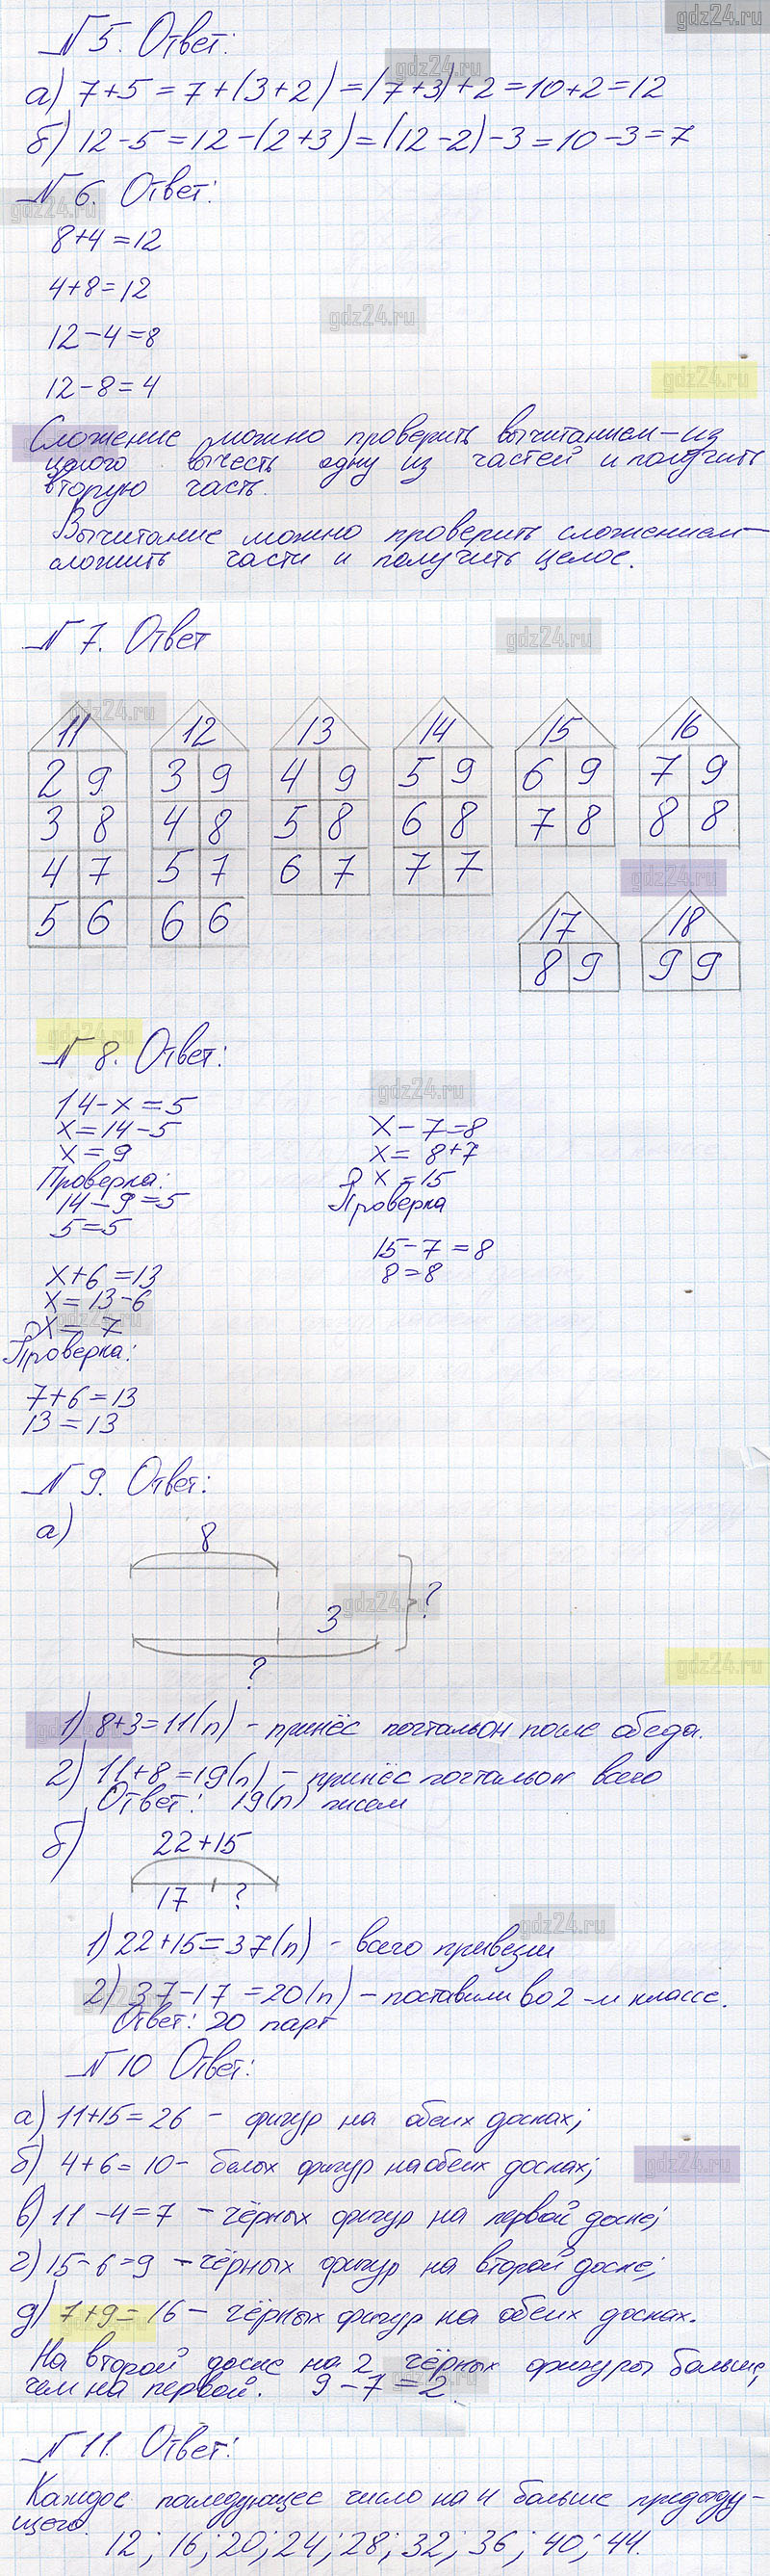 gdz24.ru
№5. Ответ:
gdz24.ru
а) 7+5=7+(3+2)=(7+3)+2=10+2=12
б) 12-5=12-(2+3)=(12-2)-3=10-3=7
№6. Ответ:
gdz24.ru
8+4=12
4+8=12
gdz24.ru
12-4=8
gdz24.ru
12-8=4
Сложение можно проверить вычитанием-из
целого вычесть одну из частей и получить
вторую часть.
Вычитание можно проверить сложением-
сложить части и получить целое.
№7. Ответ
gdz24.ru
gdz24.ru
11 12 13 14 15 16
2 9 3 9 4 9 5 9 6 9 7 9
3 8 4 8 5 8 6 8 7 8 8 8
4 7 5 7 6 7 7 7
gdz24.ru
5 6 6 6
17 18
8 9 9 9
gdz24.ru
№8. Ответ:
gdz24.ru
14-x=5
x=14-5
x=9
Проверка:
14-9=5
5=5
x-7=8
x=8+7
x=15
Проверка
15-7=8
8=8
x+6=13
x=13-6
x=7
gdz24.ru
Проверка:
7+6=13
13=13
№9. Ответ:
а)
8
gdz24.ru
3 ?
?
gdz24.ru
1) 8+3=11(п) - принёс почтальон после обеда.
2) 11+8=19(п) - принёс почтальон всего
Ответ: 19(п) писем
б) 22+15
17 ?
gdz24.ru
1) 22+15=37(п) - всего привезли
2) 37-17=20(п) - поставили во 2-м классе.
Ответ: 20 парт
№10 Ответ:
а) 11+15=26 - фигур на обеих досках;
б) 4+6=10- белых фигур на обеих досках;
gdz24.ru
в) 11-4=7 - чёрных фигур на первой доске;
г) 15-6=9 - чёрных фигур на второй доске;
д) 7+9=16- чёрных фигур на обеих досках.
На второй доске на 2 чёрных фигуры больше,
чем на первой. 9-7=2.
gdz24.ru
№11. Ответ:
Каждое последующее число на 4 больше предыду-
щего.
12; 16; 20; 24; 28; 32; 36; 40; 44.